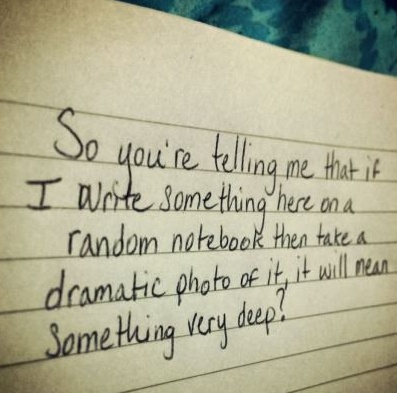 So you're telling me that if
I write something here on a
random notebook then take a
dramatic photo of it, it will mean
something very deep?